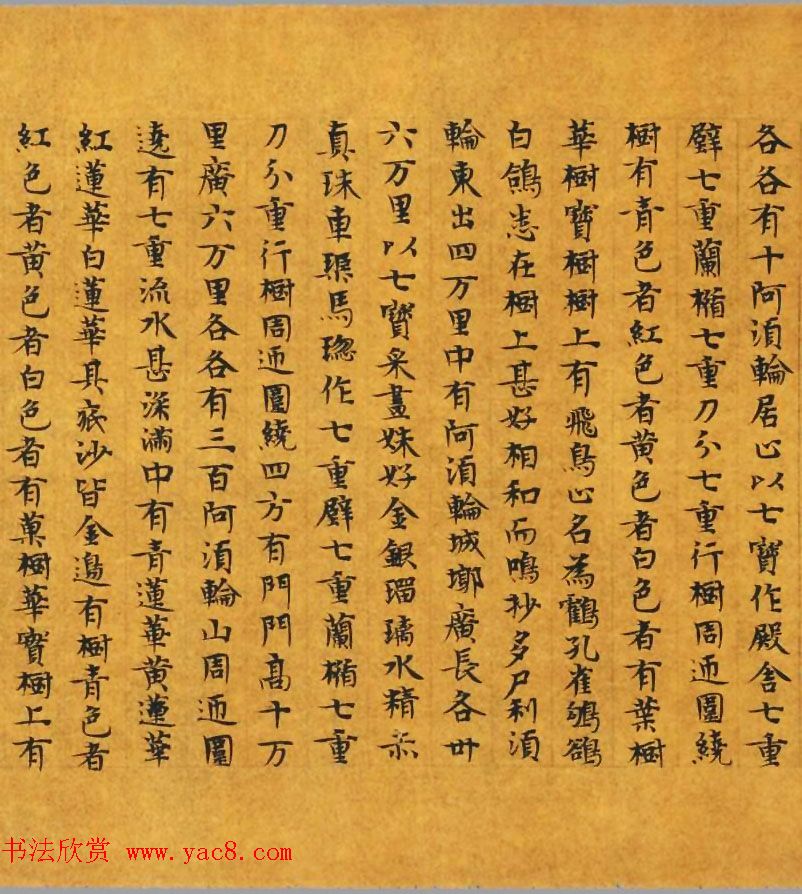 各各有十阿須輪居止以七寶作殿舍七重
壁七重蘭楯七重刀分七重行樹周迊圍繞
樹有青色者紅色者黃色者白色者有葉樹
華樹寶樹樹上有飛鳥止名為鶴孔雀鴝鵒
白鴿悉在樹上甚好相和而鳴抄多尸利須
輪東出四万里中有阿須輪城墎廣長各卅
六万里以七寶采畫姝好金銀瑠璃水精赤
真珠車璖馬瑙作七重壁七重蘭楯七重
刀分重行樹周迊圍繞四方有門門高十万
里廣六万里各各有三百阿須輪山周迊圍
遶有七重流水甚深滿中有青蓮華黃蓮華
紅蓮華白蓮華其底沙皆金邊有樹青色者
紅色者黃色者白色者有菓樹華寶樹上有
书法欣赏 www.yac8.com